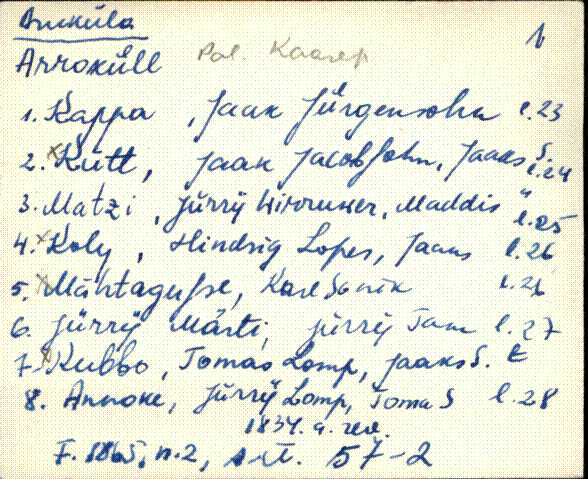 Aruküla
Arroküll Pal. Kaarep
1
1. Kappa, Jaak Jürgensohn l.23
2. × Kütt, Jaak Jacobsohn, Jaaks S. l.24
3. Matzi, Jürry Wirruwer, Maddis " l.25
4. × Koly, Hindrig Lopes, Jaans l.26
5. × Mähtagusse, Karl Sonik l.26
6. Jürry Märti, Jürry Tam l.27
7. × Kubbo, Tomas Lomp, Jaaks S. E
8. Annoke, Jürry Lomp, Toma S l.28
1834. a. rev.
F. 1865, n.2, s.-ü. 57-2